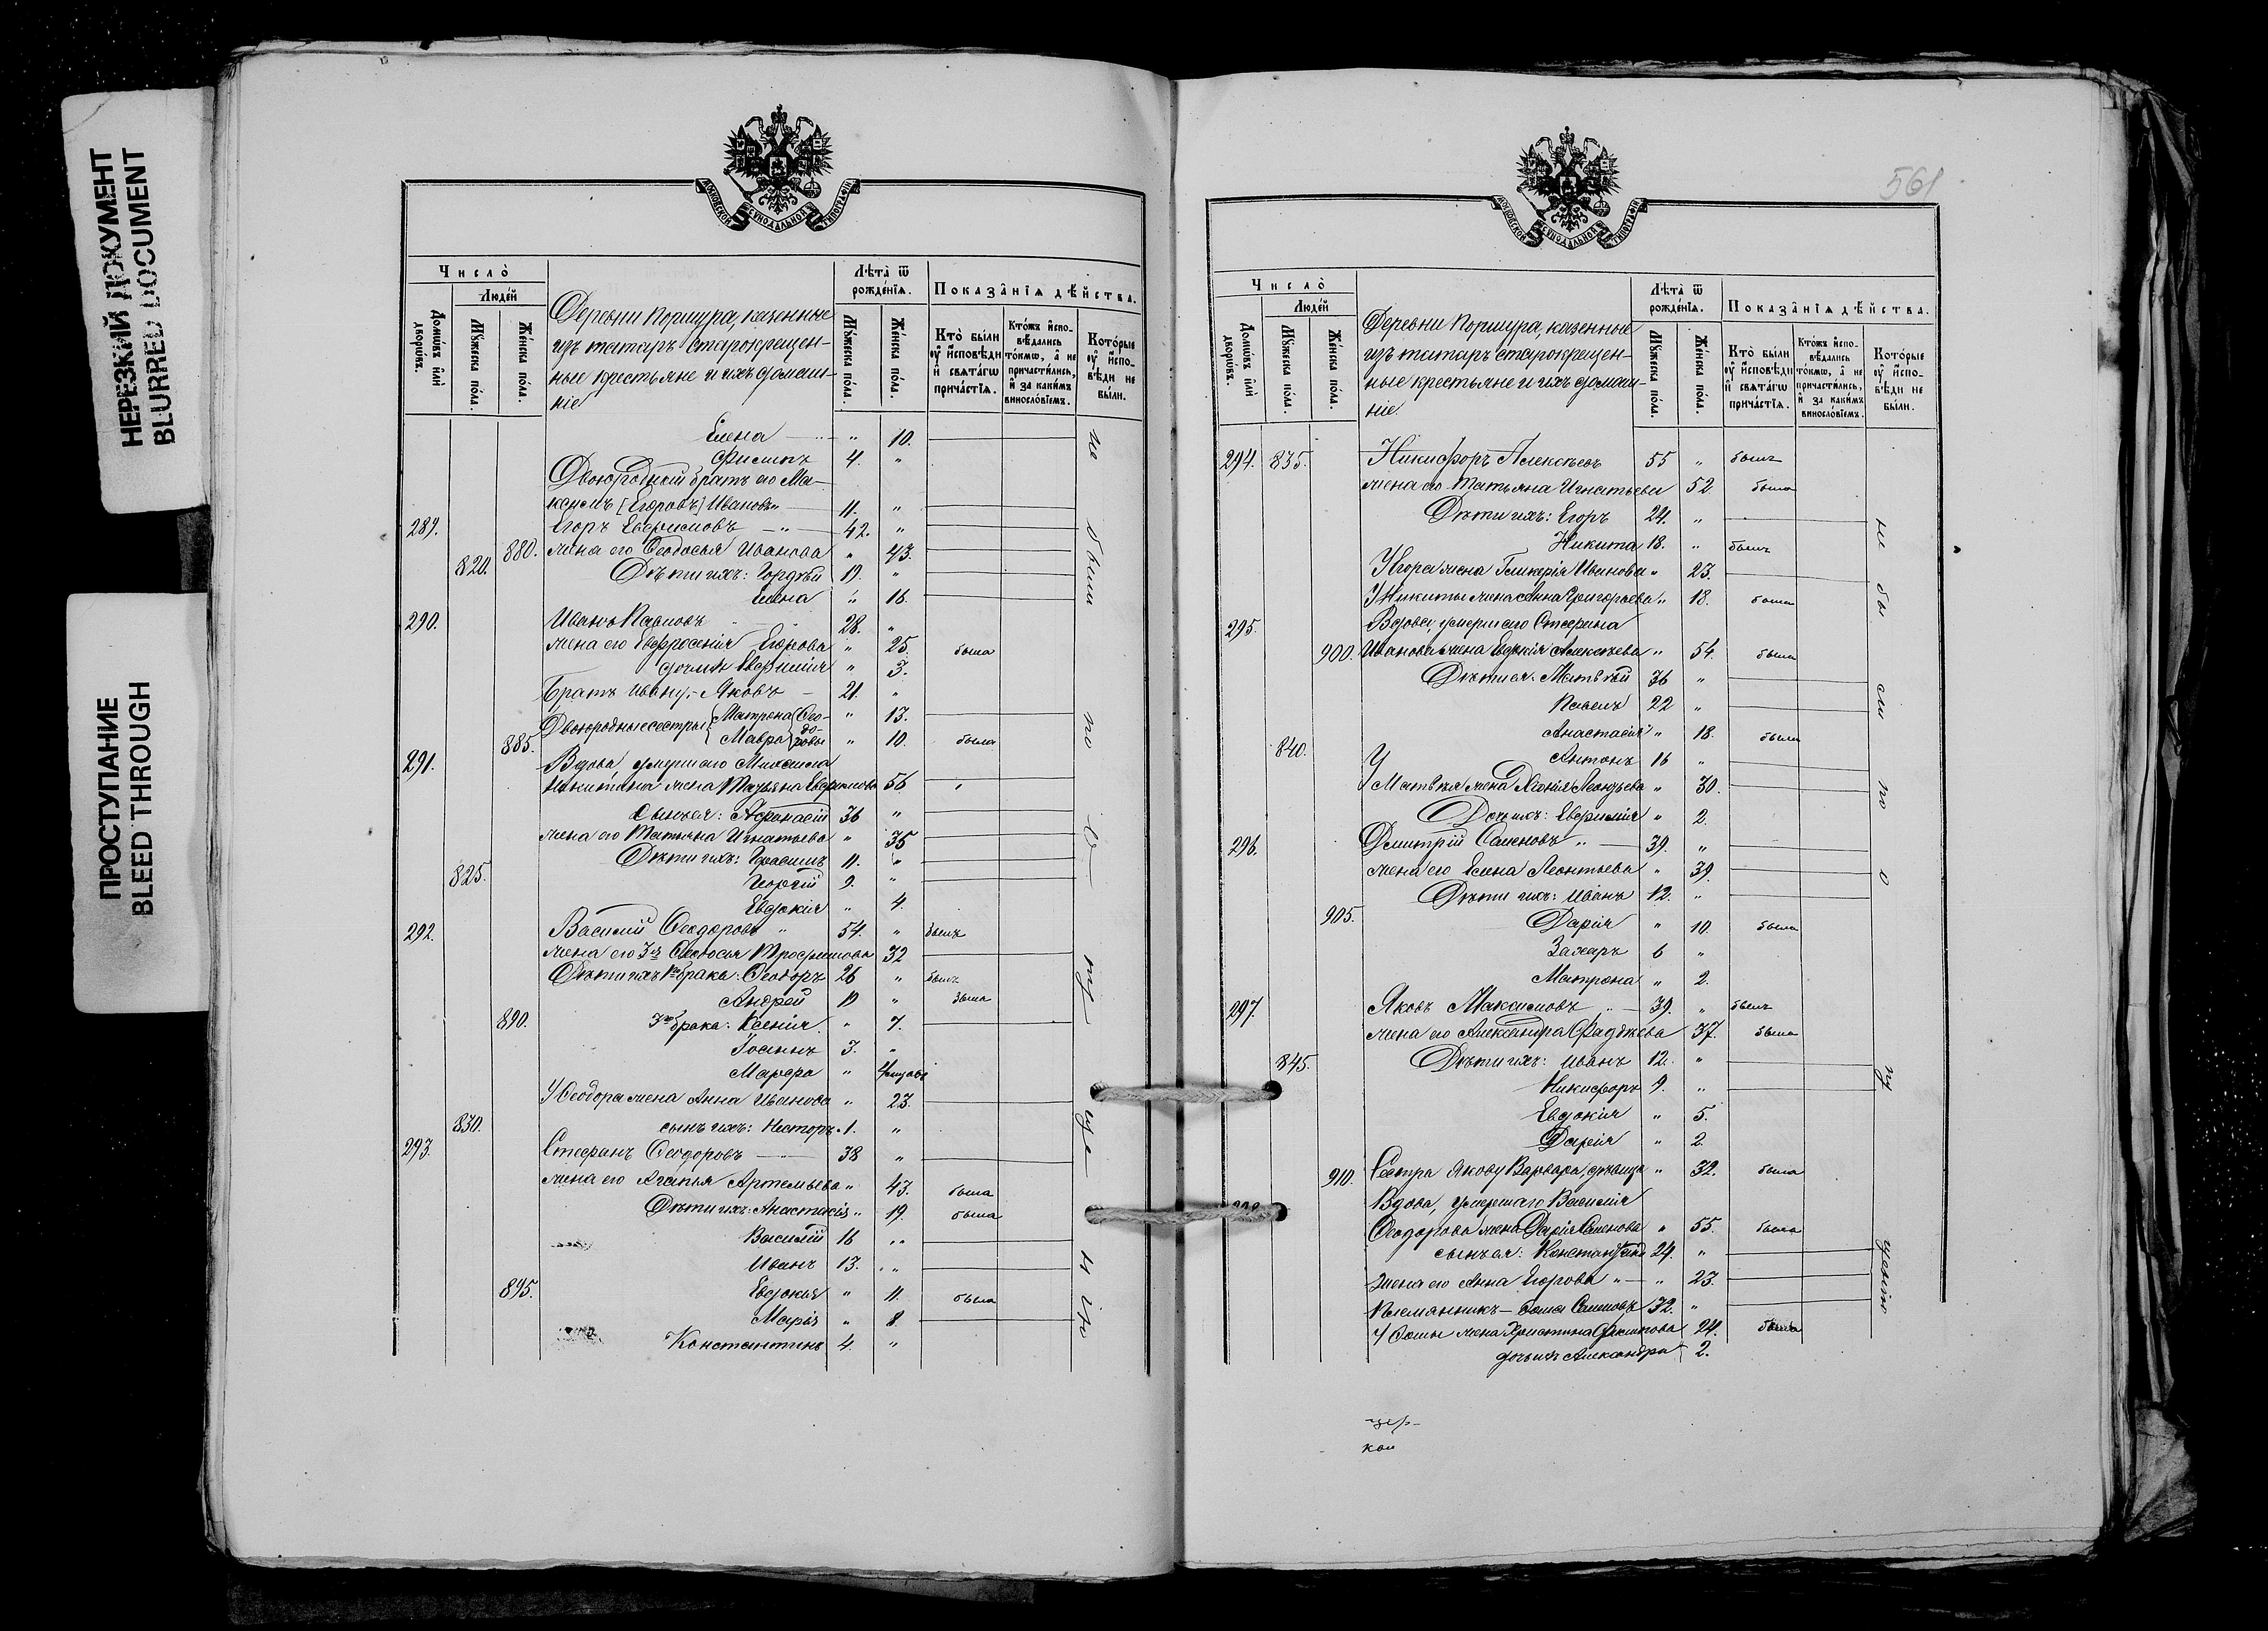 НЕРЕЗКИЙ ДОКУМЕНТ
BLURRED DOCUMENT
ПРОСТУПАНИЕ
BLEED THROUGH
МОСКОВСКОЙ СѴНОДАЛЬНОЙ ТИПОГРАФІИ
Число̀
Людей
Домѡвъ и҆лѝ дворѡвъ.
Мꙋжеска по́ла.
Же́нска по́ла.
Деревни Поршура, казенные
изъ татаръ старокрещен-
ные крестьяне и ихъ домаш-
ніе
Лѣта̀ ѿ рожде́нїѧ.
Мꙋжеска по́ла.
Же́нска по́ла.
Показа̑нїѧ дѣ́йства.
Кто̀ бы́ли ᲂу҆ и҆сповѣди и҆ свѧта́гѡ прича́стїѧ.
Кто́жъ и҆спо-вѣдались то́кмѡ, а҆ не причасти́лись, и҆ за каки́мъ винослόвїемъ.
Кото́рые ᲂу҆ и҆спо-вѣди не бы́ли.
Елена " 10.
Филиппъ 4. "
Двоюродный братъ его Ма-
ксимъ [Егоровъ] Ивановъ 11. "
289. Егоръ Евфимовъ " 42. "
880. жена его Ѳеодосья Иванова " 43.
820. Дѣти ихъ: Гордѣй 19. "
Елена " 16.
290. Иванъ Павловъ 28. "
жена его Евфросинія Егорова " 25. была
дочь ихъ Евфимія " 3.
Братъ Ивану: Яковъ 21. "
Двоюродные сестры {Матрона {Ѳео- " 13.
885. {Мавра до-ровы " 10. была
291. Вдова умершаго Михаила
Никитина жена Татьяна Евфимова 56
Сынъ ея: Аѳанасій 36 "
жена его Татьяна Игнатьева " 35
Дѣти ихъ: Герасимъ 11. "
825. Георгій 9. "
Евдокія " 4.
292. Василій Ѳеодоровъ " 54. " былъ
жена его 3я Ѳеодосья Трофимова 32
Дѣти ихъ 1го брака: Ѳеодоръ 26 " былъ
Андрей 19 " была
890. 3го брака: Ксенія " 7.
Іоаннъ 3. "
Марѳа "
У Ѳеодора жена Анна Иванова " 23.
830. сынъ ихъ: Несторъ 1. "
293. Стефанъ Ѳеодоровъ 38 "
жена его Агапья Артемьева " 43. была
Дѣти ихъ: Анастасія " 19. была
Василій 16 "
Иванъ 13. "
895. Евдокія " 11. была
Марія " 8
Константинъ 4. "
не были по
561
МОСКОВСКОЙ СѴНОДАЛЬНОЙ ТИПОГРАФІИ
Число̀
Людей
Домѡвъ и҆лѝ дворѡвъ.
Мꙋжеска по́ла.
Же́нска по́ла.
Деревни Поршура, казенные
изъ татаръ старокрещен-
ные крестьяне и ихъ домаш-
ніе
Лѣта̀ ѿ рожде́нїѧ.
Мꙋжеска по́ла.
Же́нска по́ла.
Показа̑нїѧ дѣ́йства.
Кто̀ бы́ли ᲂу҆ и҆сповѣди и҆ свѧта́гѡ прича́стїѧ.
Кто́жъ и҆спо-вѣдались то́кмѡ, а҆ не причасти́лись, и҆ за каки́мъ винослόвїемъ.
Кото́рые ᲂу҆ и҆спо-вѣди не бы́ли.
294. 835. Никифоръ Алексѣевъ 55 " былъ
жена его Татьяна Игнатьева 52. была
Дѣти ихъ: Егоръ 24. "
Никита 18. " былъ
У Егора жена Гликерія Иванова " 23.
У Никиты жена Анна Григорьева " 18. была
295. Вдова, умершаго Стефана
900. Иванова жена Евдокія Алексѣева " 54. была
Дѣти ея: Матвѣй 36 "
Павелъ 22 "
Анастасія " 18. была
840. Антонъ 16 "
У Матвѣя жена Ксенія Леонтьева " 30.
Дочь ихъ: Евфимія " 2.
296. Дмитрій Семеновъ " 39. "
жена его Елена Леонтьева " 39.
Дѣти ихъ: Иванъ 12. "
905. Дарія " 10. была
Захаръ 6 "
Матрона " 2.
297. Яковъ Максимовъ " 39. " былъ
жена его Александра Фаддѣева 37. была
845. Дѣти ихъ: Иванъ 12. "
Никифоръ 9. "
Евдокія " 5.
Дарія " 2.
910. Сестра Якову Варвара, дѣвица " 32. была
Вдова, умершаго Василія
Ѳеодорова жена Дарія Семенова " 55. была
сынъ ея: Константинъ 24. "
жена его Анна Егорова " " 23.
Племянникъ Ѳома Семеновъ 32. "
У Ѳомы жена Христина 24. была
дочь ихъ Александра 2.
не были по